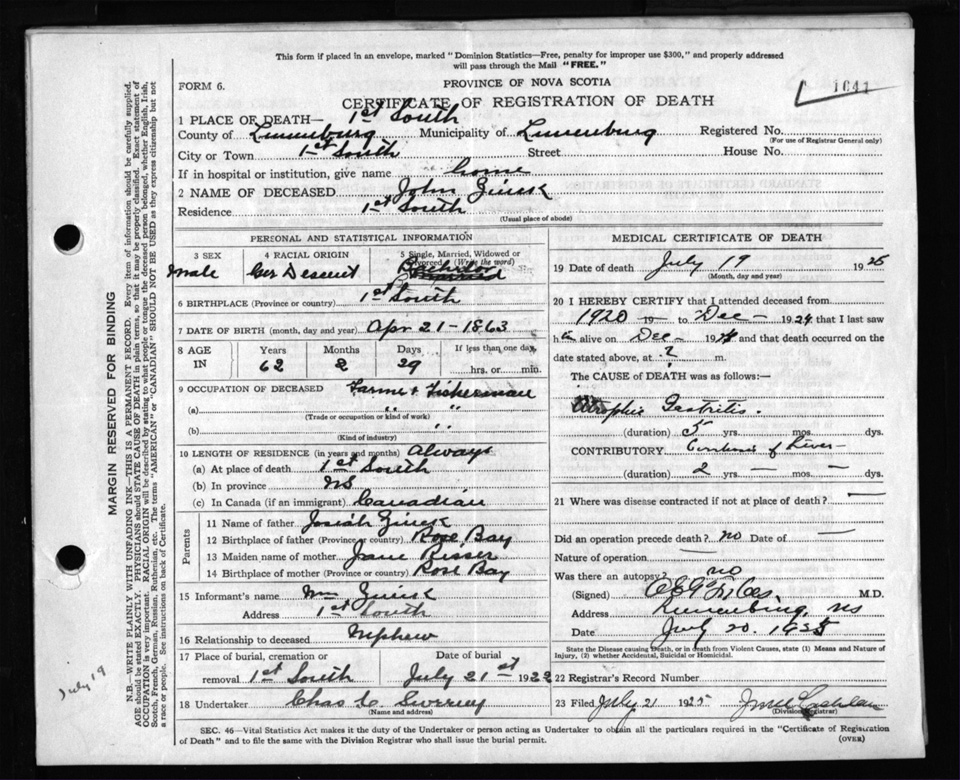 This form if placed in an envelope, marked "Dominion Statistics—Free, penalty for improper use $300," and properly addressed
will pass through the Mail "FREE."
FORM 6.
PROVINCE OF NOVA SCOTIA
1641
CERTIFICATE OF REGISTRATION OF DEATH
1 PLACE OF DEATH— 1st South
County of Lunenburg Municipality of Lunenburg Registered No.
(For use of Registrar General only)
City or Town 1st South Street House No.
If in hospital or institution, give name home
2 NAME OF DECEASED John Zinck
Residence 1st South
(Usual place of abode)
PERSONAL AND STATISTICAL INFORMATION
3 SEX 4 RACIAL ORIGIN 5 Single, Married, Widowed or
Divorced (Write the word)
Male Ger Descent Bachelor
6 BIRTHPLACE (Province or country) 1st South
7 DATE OF BIRTH (month, day and year) Apr 21 - 1863
8 AGE IN Years Months Days If less than one day,
62 2 29 hrs. or min.
9 OCCUPATION OF DECEASED Farmer & Fisherman
(a) " "
(Trade or occupation or kind of work)
(b) "
(Kind of industry)
10 LENGTH OF RESIDENCE (in years and months) Always
(a) At place of death 1st South
(b) In province NS
(c) In Canada (if an immigrant) Canadian
Parents
11 Name of father Josiah Zinck
12 Birthplace of father (Province or country) Rose Bay
13 Maiden name of mother Jane Risser
14 Birthplace of mother (Province or country) Rose Bay
15 Informant's name Wm Zinck
Address 1st South
16 Relationship to deceased Nephew
17 Place of burial, cremation or Date of burial
removal 1st South July 21st 1922
18 Undertaker Chas
(Name and address)
MEDICAL CERTIFICATE OF DEATH
19 Date of death July 19 1925
(Month, day and year)
20 I HEREBY CERTIFY that I attended deceased from
1920 19— to Dec — 1924 that I last saw
h alive on Dec — 1924 and that death occurred on the
date stated above, at ? m.
The CAUSE of DEATH was as follows:—
Atrophic Gastritis.
(duration) 5 yrs. mos. dys.
CONTRIBUTORY Cirrhosis of Liver —
(duration) 2 yrs. — mos. — dys.
21 Where was disease contracted if not at place of death? —
Did an operation precede death? no Date of —
Nature of operation —
Was there an autopsy? no
(Signed) M.D.
Address Lunenburg, NS
Date July 20. 1925
State the Disease causing Death, or in death from Violent Causes, state (1) Means and Nature of
Injury, (2) whether Accidental, Suicidal or Homicidal.
22 Registrar's Record Number
23 Filed July 21 1925
(Division Registrar)
SEC. 46—Vital Statistics Act makes it the duty of the Undertaker or person acting as Undertaker to obtain all the particulars required in the "Certificate of Registration
of Death" and to file the same with the Division Registrar who shall issue the burial permit.
(OVER)
MARGIN RESERVED FOR BINDING
N.B.—WRITE PLAINLY WITH UNFADING INK—THIS IS A PERMANENT RECORD. Every item of information should be carefully supplied.
AGE should be stated EXACTLY. PHYSICIANS should STATE CAUSE OF DEATH in plain terms, so that it may be properly classified. Exact statement of
OCCUPATION is very important. RACIAL ORIGIN will be described by stating to what people or tongue the deceased person belonged, whether English, Irish,
Scotch, French, German, Russian, Ruthenian, etc. The terms "AMERICAN" or "CANADIAN" SHOULD NOT BE USED as they express citizenship but not
a race or people. See instructions on back of Certificate.
July 19